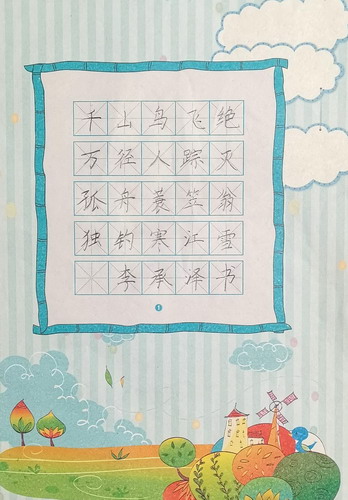 千山鸟飞绝
万径人踪灭
孤舟蓑笠翁
独钓寒江雪
李承泽书
1